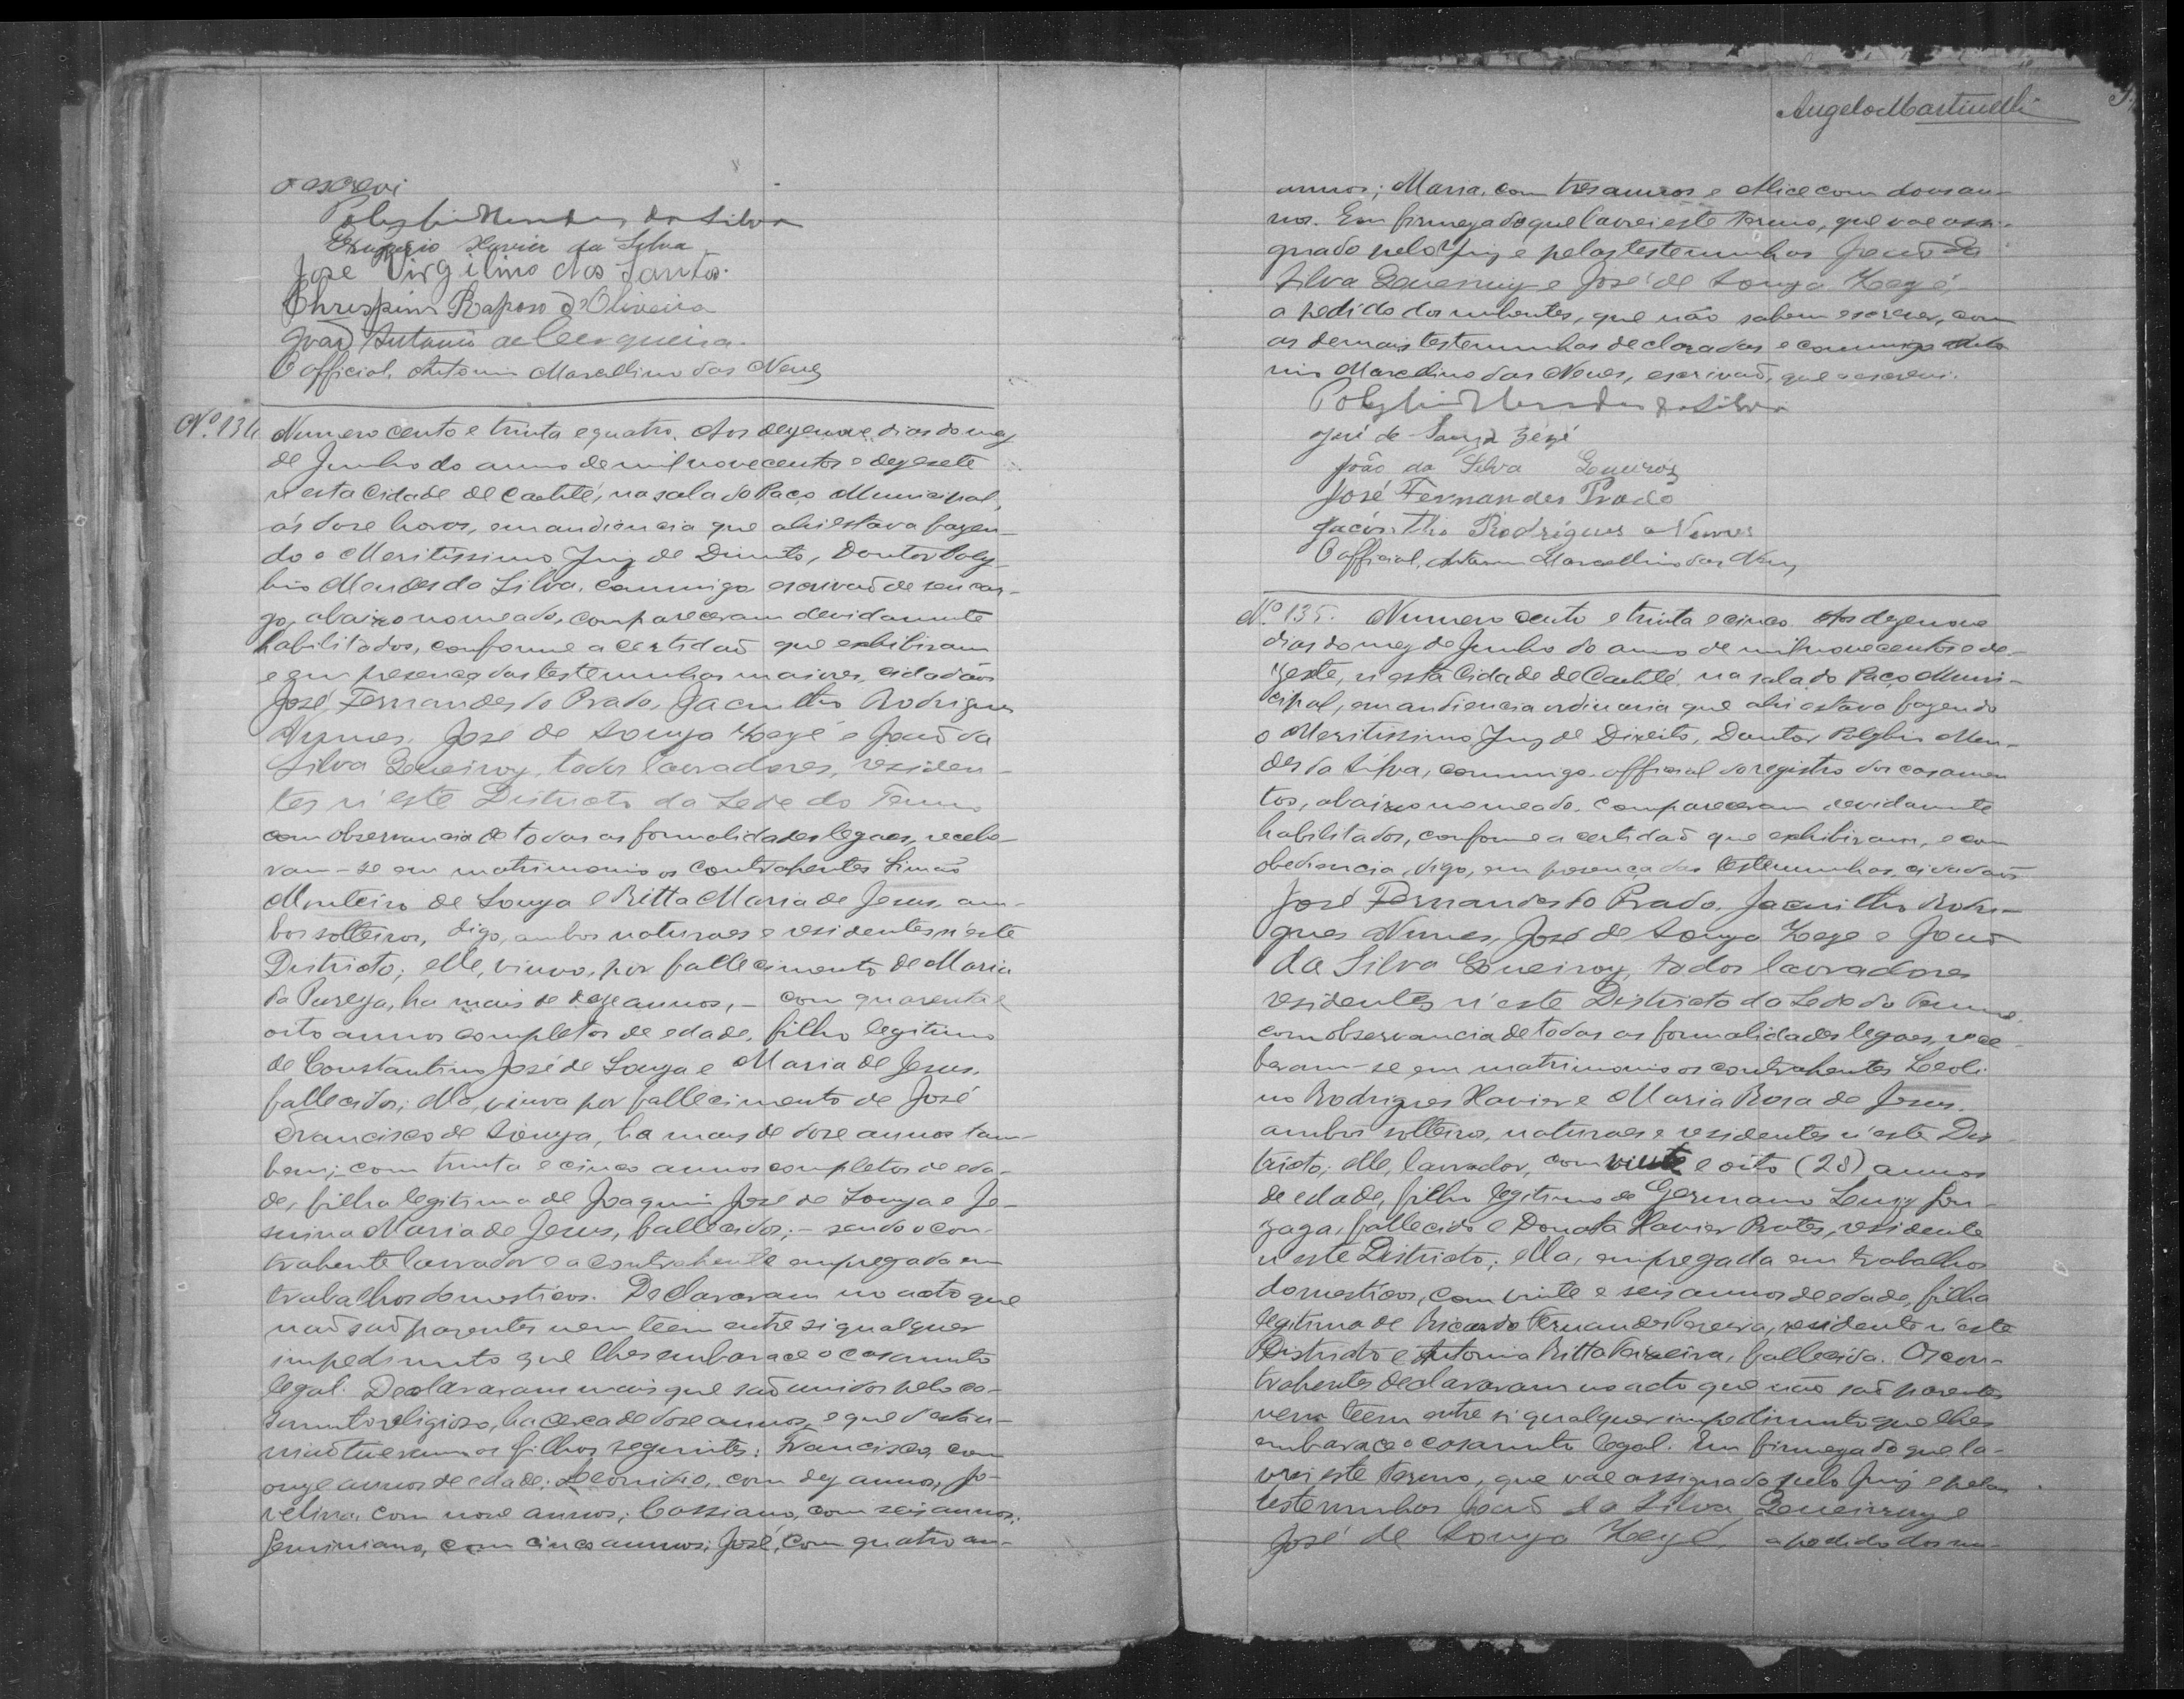 o escrevi
Polybio Mendes da Silva
Xavier da Silva
José Virgilino dos Santos.
Chrispim Raposo d'Oliveira
João Antonio de Cerqueira.
O official, Antonio Marcellino das Neves
Nº 134 Numero cento e trinta e quatro. Aos dezenove dias do mez
de Junho do anno de mil novecentos e dezesete
n'esta Cidade de Caetité, na sala do Paço Municipal,
ás doze horas, em audiencia que ahi estava fazen-
do o Meritissimo Juiz de Direito, Doutor Poly-
bio Mendes da Silva, commigo escrivão de seu car-
go, abaixo nomeado, compareceram devidamente
habilitados, conforme a certidão que exhibiram
e em presença das testemunhas maiores, cidadãos
José Fernandes do Prado, Jacintho Rodrigues
Nunes, José de Souza Zezé e João da
Silva Queiroz, todos lavradores, residen-
tes n'este Districto da Sede do Termo
com observancia de todas as formalidades legaes, recebe-
ram-se em matrimonio os contrahentes Simão
Monteiro de Souza e Ritta Maria de Jesus, am-
bos solteiros, digo, ambos naturaes e residentes n'este
Districto; elle, viuvo, por fallecimento de Maria
da Pureza, ha mais de doze annos, - com quarenta e
oito annos completos de edade, filho legitimo
de Constantino José de Souza e Maria de Jesus,
fallecidos; ella, viuva por fallecimento de José
Francisco de Souza, ha mais de doze annos tam-
bem; com trinta e cinco annos completos de eda-
de, filha legitima de Joaquim José de Souza e Je-
suina Maria de Jesus, fallecidos; - sendo o con-
trahente lavrador e a contrahente empregada em
trabalhos domesticos. Declararam no acto que
não são parentes nem teem entre si qualquer
impedimento que lhes embarace o casamento
legal. Declararam mais que são unidos pelo ca-
samento religioso, ha cerca de doze annos, e que d'esta u-
nião tiveram os filhos seguintes: Francisco, com
onze annos de edade; Leonidio, com dez annos, Jo-
velina, com nove annos; Cassiano, com seis annos;
Geminiano, com cinco annos; José, com quatro an-
Angelo Martinelli
annos; Maria, com tres annos e Alice com dous an-
nos. Em firmeza do que lavrei este termo, que vae assi-
gnado pelo Juiz e pelas testemunhas João da
Silva Queiroz e José de Souza Zezé,
a pedido dos nubentes, que não sabem escrever, com
as demais testemunhas declaradas e commigo Anto
nio Marcellino das Neves, escrivão, que o escrevi.
Polybio Mendes da Silva
José de Souza Zézé
João da Silva Queiroz
José Fernandes Prado
Jacintho Rodrigues Nunes
O official, Antonio Marcellino das Neves
Nº 135. Numero cento e trinta e cinco. Aos dezenove
dias do mez de Junho do anno de mil novecentos e de-
zesete, n'esta Cidade de Caetité, na sala do Paço Muni-
cipal, em audiencia ordinaria que ahi estava fazendo
o Meritissimo Juiz de Direito, Doutor Polybio Men-
des da Silva, commigo official do registro dos casamen
tos, abaixo nomeado, compareceram devidamente
habilitados, conforme a certidão que exhibiram, e com
obediencia, digo, em presença das testemunhas, cidadãos
José Fernandes do Prado, Jacintho Rodri-
gues Nunes, José de Souza Zeze e João
da Silva Queiroz, todos lavradores
residentes n'este Districto da Sede do Termo,
com observancia de todas as formalidades legaes, rece-
beram-se em matrimonio os contrahentes Leoli-
no Rodrigues Xavier e Maria Rosa de Jesus,
ambos solteiros, naturaes e residentes n'este Dis
tricto; elle, lavrador, com vinte e oito (28) annos
de edade, filho legitimo de Germano Luiz Gon-
zaga, fallecido e Donata Xavier Prates, residente
n'este Districto; ella, empregada em trabalhos
domesticos, com vinte e seis annos de edade, filha
legitima de Ricardo Fernandes Pereira, residente n'este
Districto e Antonia Ritta Teixeira, fallecida. Os con-
trahentes declararam no acto que não são parentes
nem teem entre si qualquer impedimento que lhes
embarace o casamento legal. Em firmeza do que la-
vrei este termo, que vae assignado pelo Juiz e pelas
testemunhas João da Silva Queiroz e
José de Souza Zezé, a pedido dos nu-